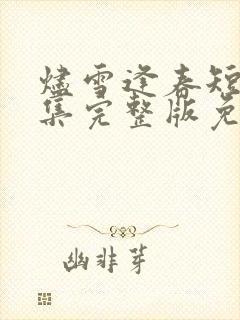 烬雪逢春短
集完整版免
幽非芽